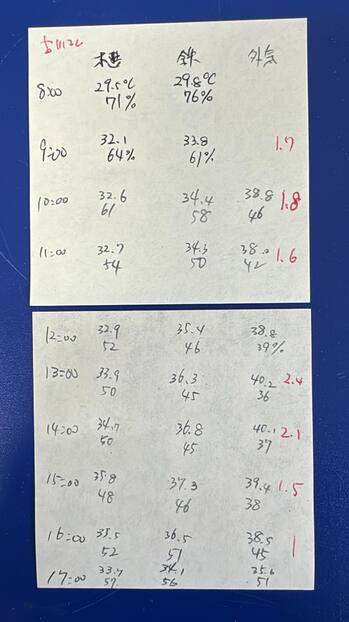 木造 鉄 外気
8:00 29.5℃ 29.8℃
71% 76%
9:00 32.1 33.8 1.7
64% 61%
10:00 32.6 34.4 38.8 1.8
61 58 46
11:00 32.7 34.3 38.0 1.6
54 50 42
12:00 32.9 35.4 38.8
52 46 39%
13:00 33.9 36.3 40.2 2.4
50 45 36
14:00 34.7 36.8 40.1 2.1
50 45 37
15:00 35.8 37.3 39.4 1.5
48 46 38
16:00 35.5 36.5 38.5 1
52 51 45
17:00 33.7 34.1 35.6
57 56 51